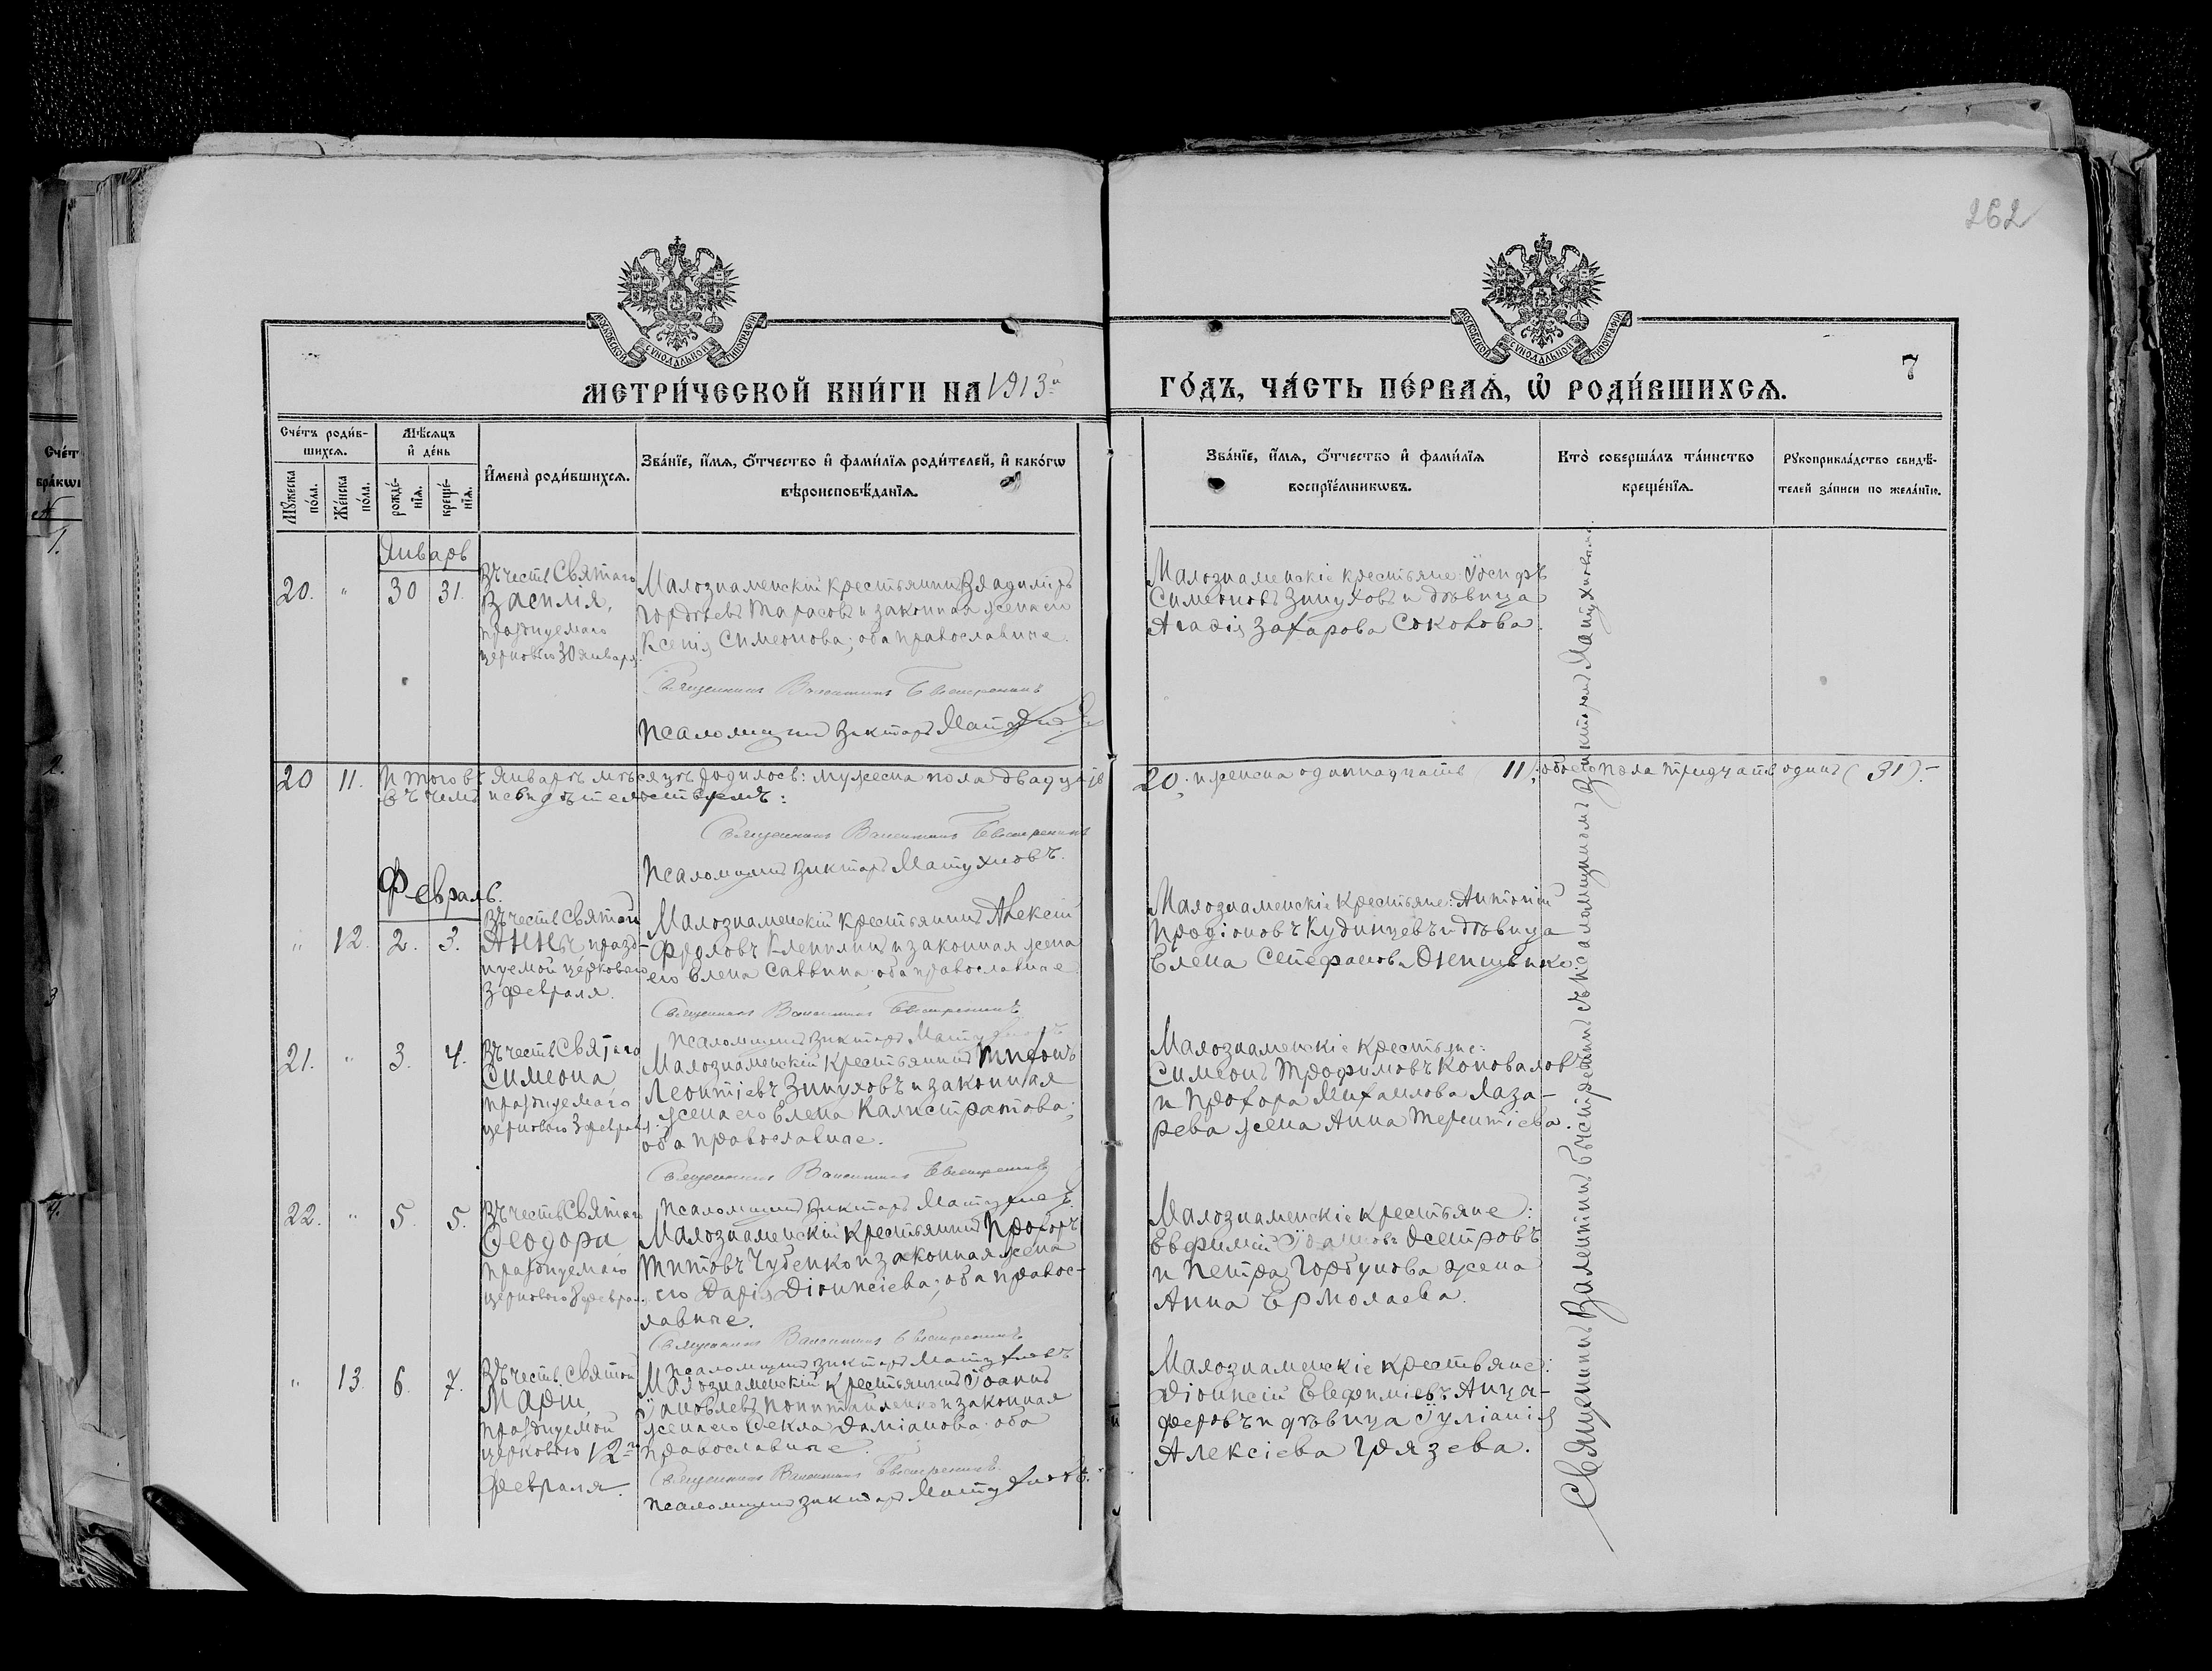 262
МОСКОВСКОЙ СУНОДАЛЬНОЙ ТИПОГРАФІИ
МОСКОВСКОЙ СУНОДАЛЬНОЙ ТИПОГРАФІИ
7
МЕТРИ́ЧЕСКОЙ КНИ́ГИ НА 1913й ГО́ДЪ, ЧА́СТЬ ПЕ́РВАѦ, Ѡ҆ РОДИ́ВШИХСѦ.
Сче́тъ роди́в-
шихсѧ.
Мѣ́сѧцъ
и҆ де́нь
Мꙋ́жеска
по́ла.
Же́нска
по́ла.
рожде́-
нїѧ.
креще́-
нїѧ.
И҆мена̀ роди́вшихсѧ.
Зва́нїе, и҆́мѧ, ѻ҆́тчество и҆ фами́лїѧ роди́телей, и҆ како́гѡ
вѣроисповѣ́данїѧ.
Зва́нїе, и҆́мѧ, ѻ҆́тчество и҆ фами́лїѧ
воспрїе́мникѡвъ.
Кто̀ соверша́лъ та́инство
креще́нїѧ.
Рꙋкоприкла́дство свидѣ́-
телей за́писи по жела́нїю.
Январь
20. " 30 31.
Въ честь Святаго
Василія,
празднуемаго
церковью 30 января.
Малознаменскій крестьянинъ Владиміръ
Гордѣевъ Тарасовъ и законная жена его
Ксенія Симеонова; оба православные.
Священникъ Валентинъ
Псаломщикъ Викторъ Матухновъ
Малознаменскіе крестьяне: Іосифъ
Симеоновъ Зинуховъ и дѣвица
Агафія Захарова Соколова.
20 11. Итого въ Январѣ мѣсяцѣ родилось: мужеска пола двадцать 20; и женска одиннадцать (11); обоего пола тридцать одинъ (31).-
въ чемъ и свидѣтельствуемъ:
Священникъ Валентинъ
Псаломщикъ Викторъ Матухновъ.
Февраль.
" 12. 2. 3.
Въ честь Святой
Анны празд-
нуемой церковью
3 февраля.
Малознаменскій крестьянинъ Алексій
Фроловъ и законная жена
его Елена Саввина; оба православные.
Священникъ Валентинъ
Псаломщикъ Викторъ Матухновъ
Малознаменскіе крестьяне: Антоній
Иродіоновъ Кудинцевъ и дѣвица
Елена Стефанова
21. " 3. 4.
Въ честь Святаго
Симеона,
празднуемаго
церковью 3 февраля.
Малознаменскій крестьянинъ Тихонъ
Леонтіевъ Зинуховъ и законная
жена его Елена Калистратова;
оба православные.
Священникъ Валентинъ
Псаломщикъ Викторъ Матухновъ.
Малознаменскіе крестьяне:
Симеонъ Трофимовъ Коноваловъ
и Прохора Михаилова Лаза-
рева жена Анна Терентіева.
22. " 5. 5.
Въ честь Святаго
Ѳеодора
празднуемаго
церковью 8 февраля.
Малознаменскій крестьянинъ Прохоръ
Титовъ Чубенко и законная жена
его Дарія Діонисіева; оба правос-
лавные.
Священникъ Валентинъ
Псаломщикъ Викторъ Матухновъ
Малознаменскіе крестьяне:
Евфимій Іоанновъ
и Петра Горбунова жена
Анна Ермолаева.
" 13. 6. 7.
Въ честь Святой
Маріи,
празднуемой
церковью 12го
февраля.
Малознаменскій крестьянинъ Іоаннъ
Іаковлевъ и законная
жена его Ѳекла Даміанова оба
православные.
Священникъ Валентинъ
Псаломщикъ Викторъ Матухновъ.
Малознаменскіе крестьяне:
Діонисій Евфиміевъ Анца-
феровъ и дѣвица Іуліанія
Алексіева Грязева.
Священникъ Валентинъ съ псаломщикомъ Викторомъ Матухновымъ.